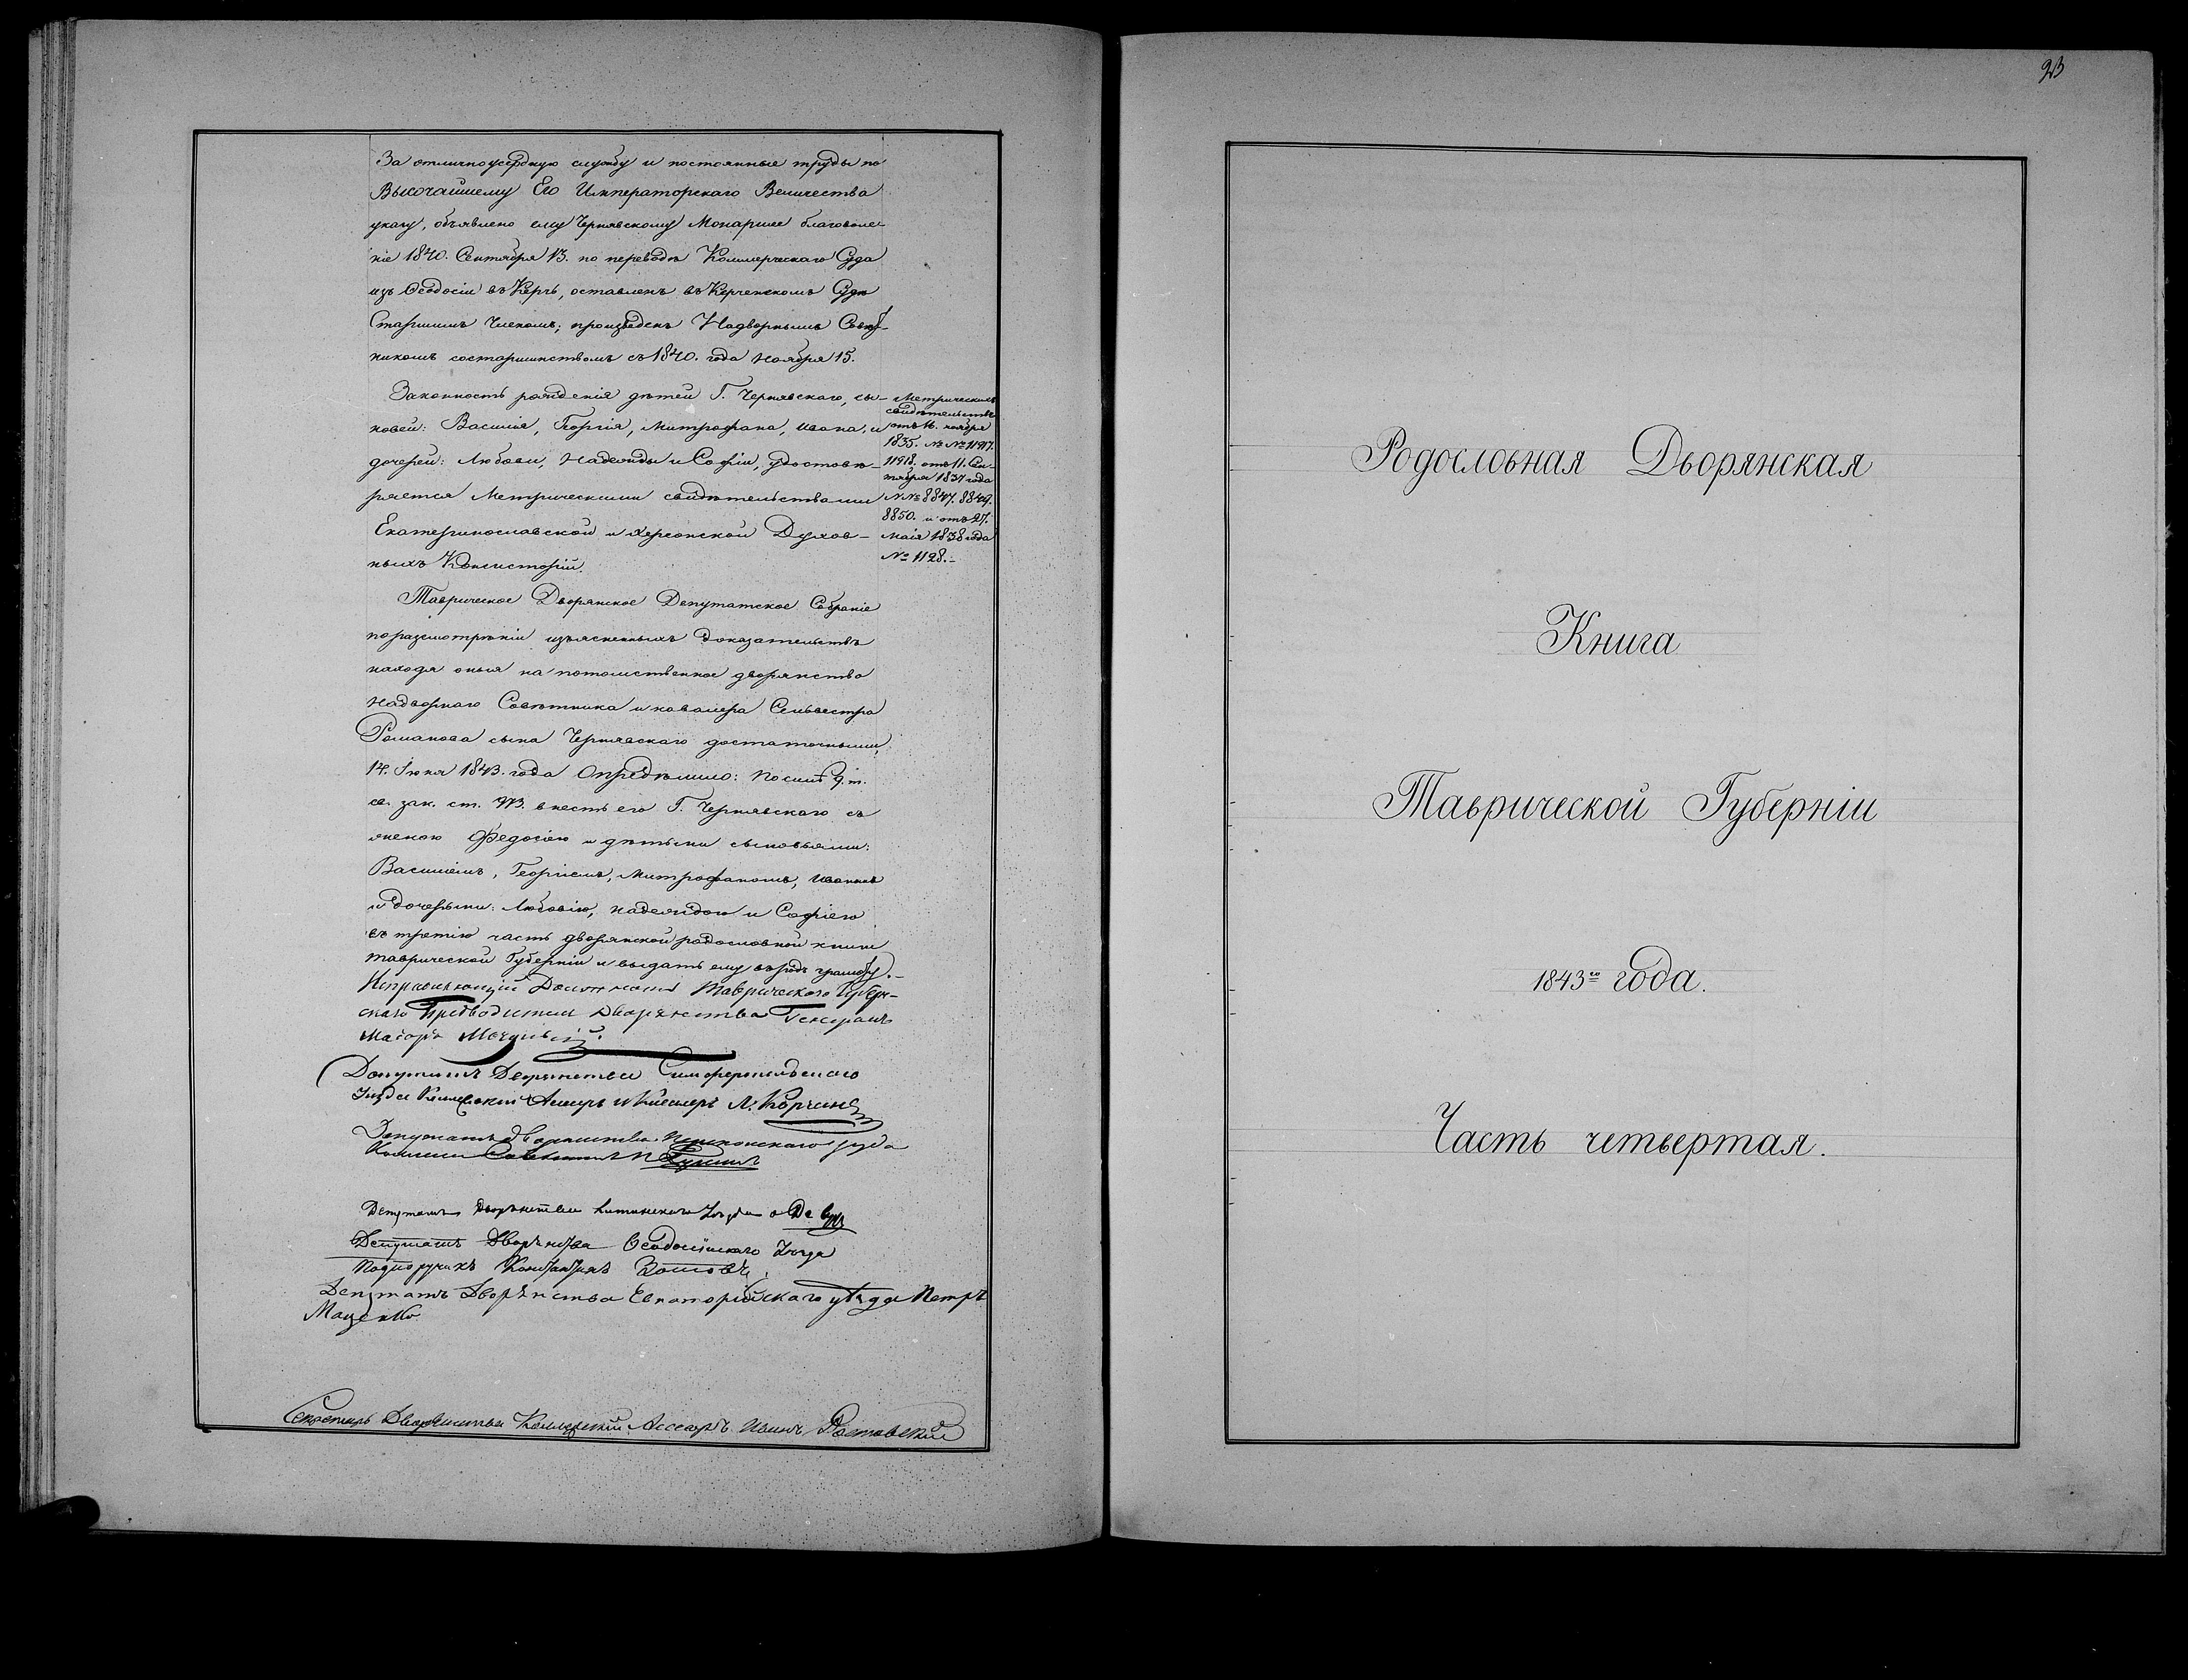 За отличноусердную службу и постоянные труды по
Высочайшему Его Императорскаго Величества
указу, объявлено ему Чернявскому Монаршее благоволе-
ніе 1840. Сентября 13. по переводѣ Коммерческаго Суда
изъ Ѳеодосіи въ Керчь, оставленъ въ Керченскомъ Судѣ
Старшимъ Членомъ; произведенъ Надворнымъ Совѣт-
никомъ состаршинствомъ съ 1840. года Ноября 15.
Законность рожденія дѣтей Г. Чернявскаго, сы-
новей: Василія, Георгія, Митрофана, Ивана, и
дочерей: Любови, Надежды и Софіи, удостовѣ-
ряется Метрическими свидѣтельствами
Екатеринославской и Херсонской Духов-
ныхъ Консисторій.
Метрическія
свидѣтельства
отъ 16. ноября
1835. №№ 11917.
11918. отъ 11. Сен-
тября 1837 года
№№ 8847. 8849.
8850. и отъ 27.
маія 1838 года
№ 1128.-
Таврическое Дворянское Депутатское Собраніе
поразсмотрѣніи изъясненныхъ доказательствъ
находя оныя на потомственное дворянство
Надворнаго Совѣтника и кавалера Сельвестра
Романова сына Чернявскаго достаточными,
14. Іюня 1843. года Опредѣлило: по силѣ 9. т.
св. зак. ст. 973. внесть его Г. Чернявскаго съ
женою Федосіею и дѣтьми сыновьями:
Василіемъ, Георгіемъ, Митрофаномъ, Иваномъ
и дочерьми: Любовію, Надеждою и Софіею
въ третію часть дворянской родословной книги
Таврической Губерніи и выдать ему въ родъ грамоту.-
Исправляющій Должность Таврическаго Губерн-
скаго Предводителя Дворянства Генералъ
Маіоръ
Депутатъ Дворянства Симферопольскаго
Уѣзда Коллежскій Асесоръ и Кавалеръ
Депутатъ дворянства Перекопскаго уѣзда
Депутатъ Дворянства Уѣзда
Депутатъ Дворянства Ѳеодосійскаго Уѣзда
Подпоручикъ Константинъ
Депутатъ Дворянства Евпаторійскаго уѣзда Петръ
Маценко
Секретарь Дворянства Коллежскій Ассесоръ Ростовскій
23
Родословная Дворянская
Книга
Таврической Губерніи
1843го года.
Часть четвертая.